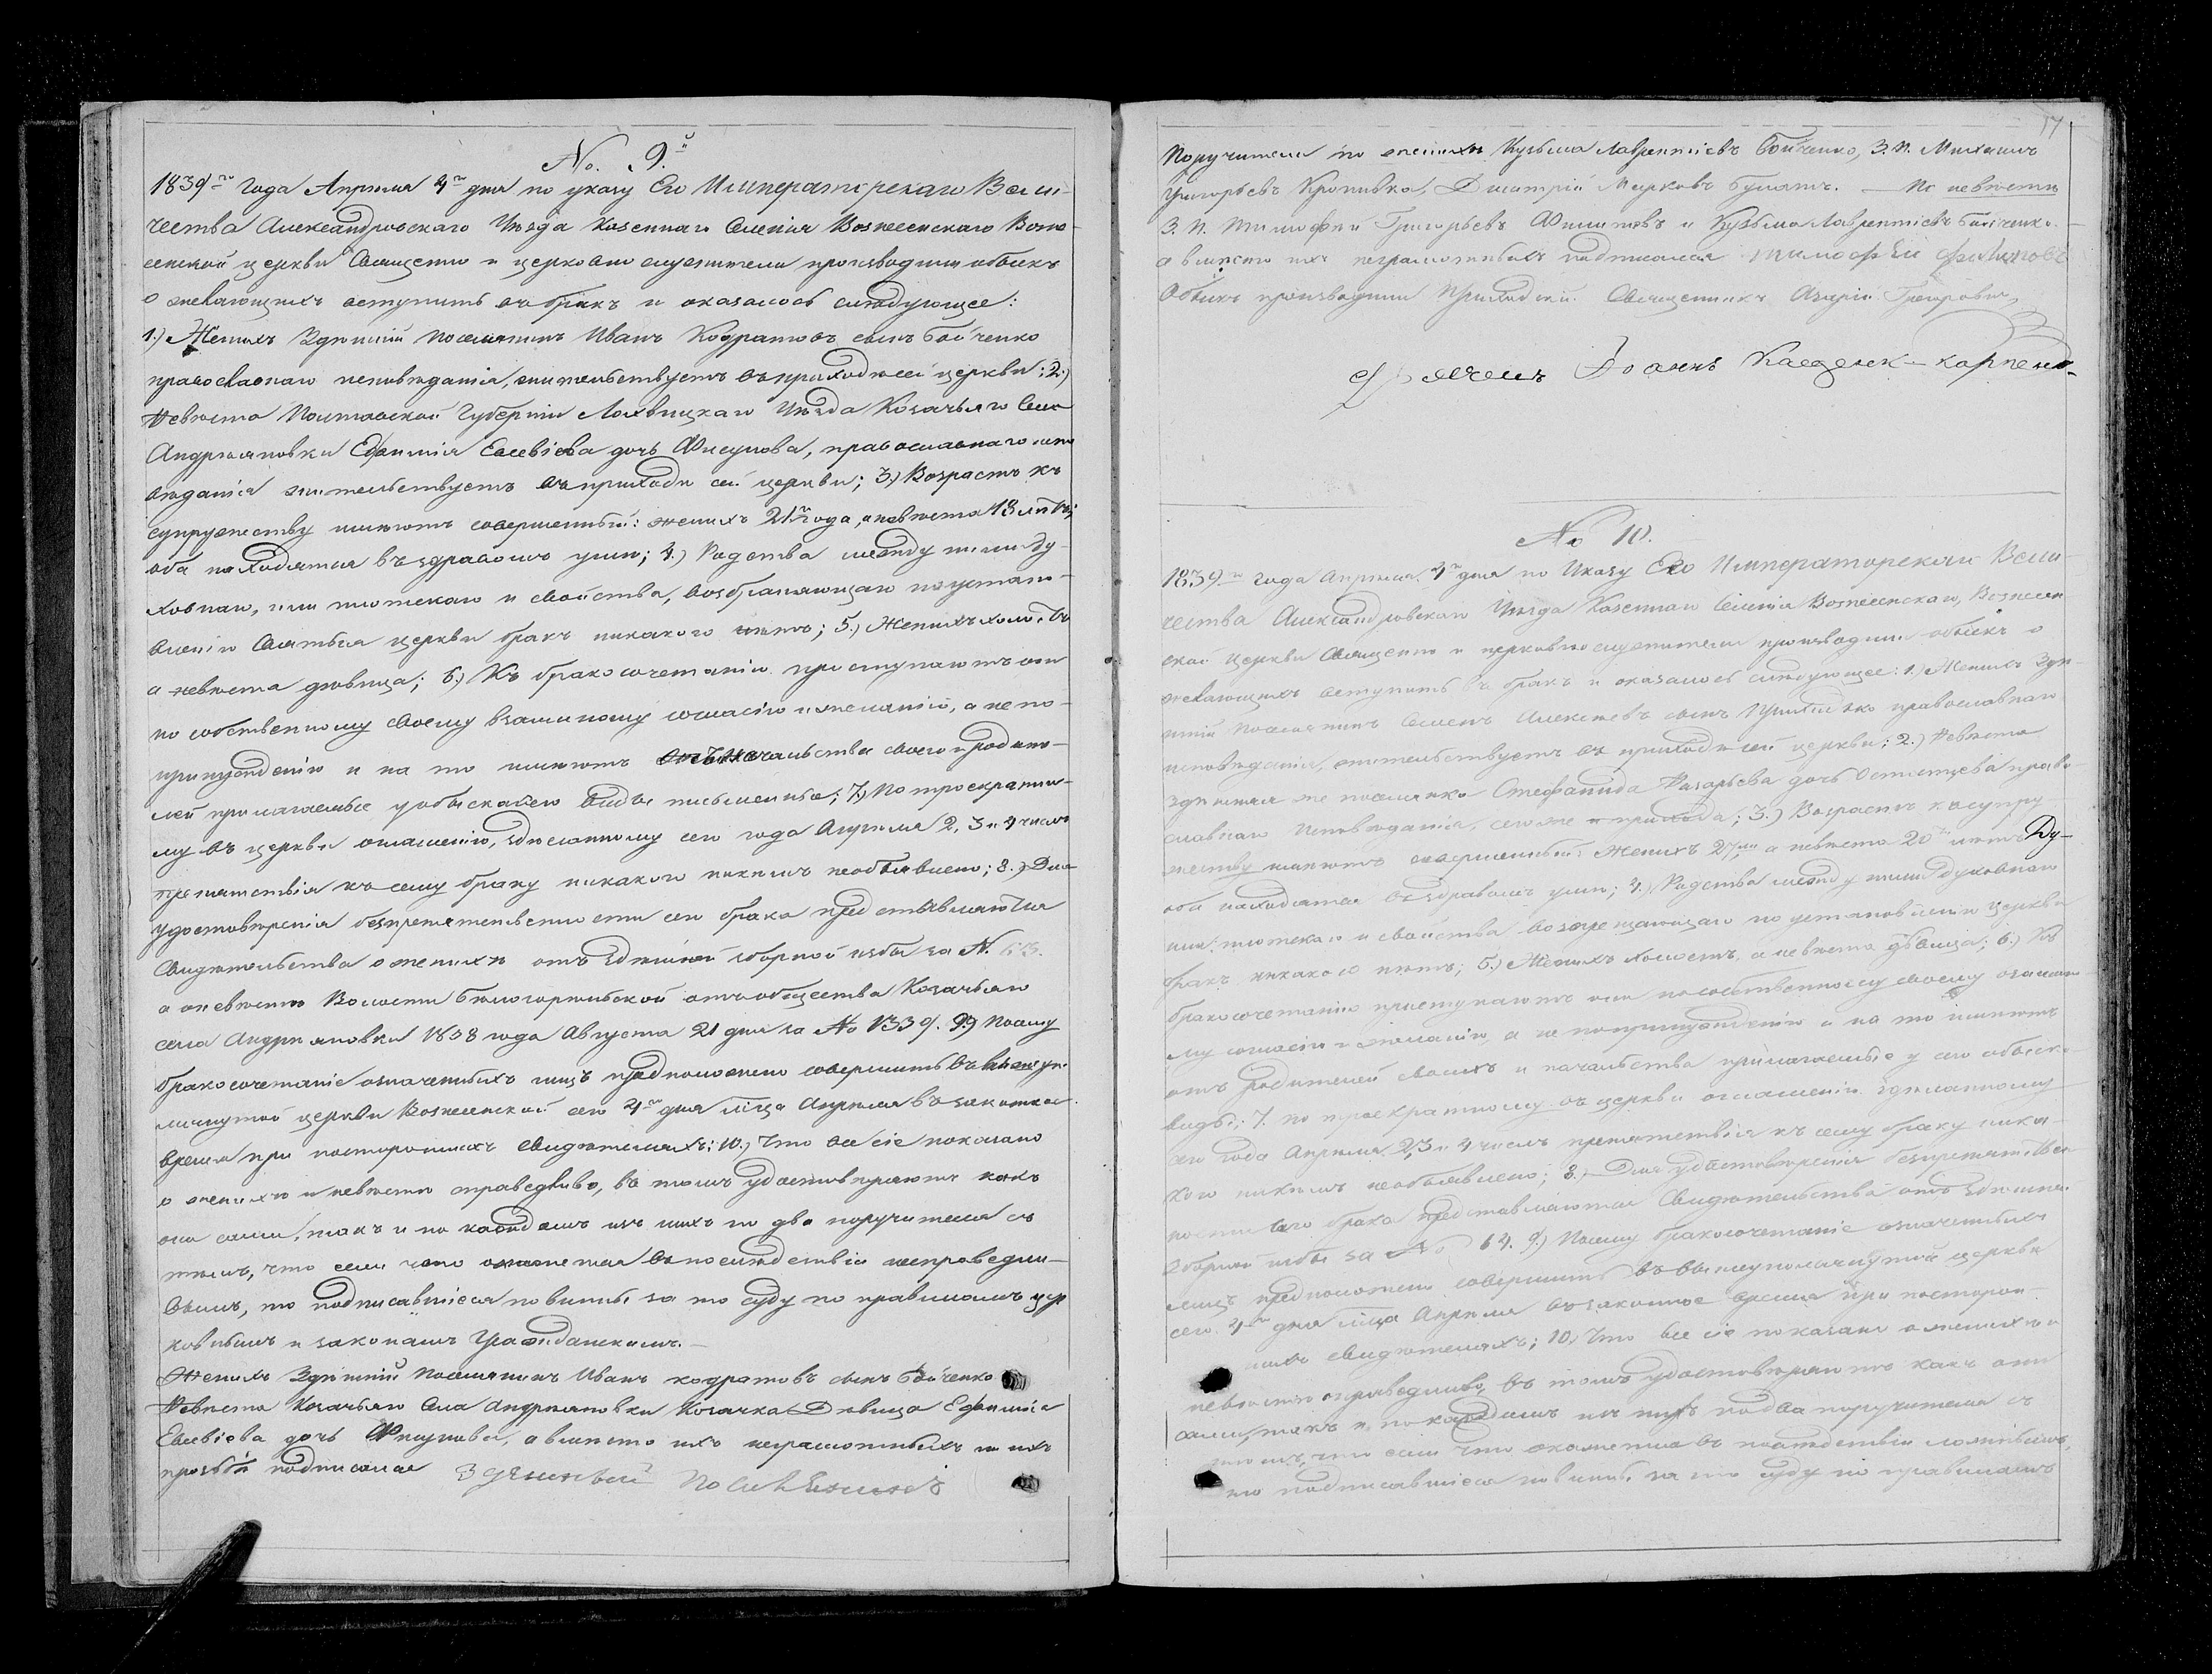 No. 9.й
1839го Года Апреля 4го дня по указу Его Императорскаго Вели-
чества Александровскаго Уезда Казеннаго Селенія Вознесенскаго Возне-
сенской церкви Священно и церковно служители производили обыскъ
о желающихъ вступить въ бракъ и оказалось следующее:
1.) Женихъ Здешній Поселянинъ Иванъ Кодратовъ сынъ Бойченко
православнаго исповеданія, жительствуетъ въ приходе сей церкви; 2.)
Невеста Полтавской Губерніи Лохвицкаго Уезда Козачьяго Села
Андреяновки Ефимія Евсевіева дочь Фисунова, православнаго испо
веданія жительствуетъ въ приходе сей церкви; 3.) Возрастъ къ
супружеству имеютъ совершенный: женихъ 21го года, а невеста 18 летъ;
оба находятся въ здравомъ уме; 4.) Родства между ими ду-
ховнаго, или плотскаго и свойства, возбраняющаго по устано-
вленію Святыя церкви бракъ никакого нетъ; 5.) Женихъ холостъ
а невеста девица; 6.) Къ бракосочетанію приступаютъ они
по собственному своему взаимному согласію и желанію, а не по-
принужденію и на то имеютъ отъ начальства своего и родите-
лей прилагаемые у обыска сего виды письменные; 7.) По троекратно-
му въ церкви оглашенію, зделанному сего года Апреля 2, 3 и 4 числъ
препятствія къ сему браку никакого никемъ необъявлено; 8.) Для
удостоверенія безпрепятственности сего брака представляются
Свидетельства о женихе отъ здешней зборной избы за N. 63.
а о невесте Волости Белогорельской отъ общества Козачьяго
села Андреяновки 1838 года Августа 21 дня за No 1339. 9.) Посему
бракосочетаніе означенныхъ лицъ предположено совершить въ вышеупо-
мянутой церкви Вознесенской сего 4го дня м͠ца Апреля въ законное
время при постороннихъ свидетеляхъ; 10.) Что все сіе показано
о женихе и невесте справедливо, въ томъ удостоверяютъ какъ
они сами, такъ и по каждомъ изъ нихъ по два поручителя съ
темъ, что если что окажется въ последствіи несправедли-
вымъ, то подписавшіеся повинны за то суду по правиламъ цер
ковнымъ и законамъ Гражданскимъ. —
Женихъ Здешній Поселянинъ Иванъ Кодратовъ сынъ Бойченко
Невеста Козачьяго Села Андреяновки Козачка Девица Ефимія
Евсевіева дочь Фисунова, а вместо ихъ неграмотныхъ по ихъ
прозьбе подписался Здешный Поселенинъ
17
Поручители по женихе Кузьма Лаврентіевъ Бойченко, З. П. Михаилъ
Григорьевъ Кропивка, Дмитрій Марковъ Булатъ. — По невесте
З. П. Тимофей Григорьевъ Филиповъ и Кузьма Лаврентіевъ Бойченко.
а вместо ихъ неграмотныхъ подписался Тимофей Филиповъ
Обыскъ производили Приходскій Священникъ Азарій Григоровичъ
Іоаннъ
No 10.
1839го года Апреля 4го дня по Указу Его Императорскаго Вели-
чества Александровскаго Уезда Казеннаго Селенія Вознесенскаго, Вознесен
ской церкви Священно и церковнослужители производили обыскъ о
желающихъ вступить въ бракъ и оказалось следующее: 1.) Женихъ Зде-
шній Поселянинъ Семенъ Алексеевъ сынъ православнаго
исповеданія, жительствуетъ въ приходе сей церкви; 2.) Невеста
здешняя же поселянка Стефанида Назарьева дочь право-
славнаго исповеданія, сего же прихода; 3.) Возрастъ к супру
жеству имеютъ совершенный: женихъ 27ми а невеста 20ти летъ
оба находятся въ здравомъ уме; 4.) Родства между ими духовнаго
или плотскаго и свойства возпрещающаго по установленію церкви
бракъ никакого нетъ; 5.) Женихъ холостъ, а невеста девица; 6.) Къ
бракосочетанію приступаютъ они по собственному своему взаимно
му согласію и желанію, а не по принужденію и на то имеютъ
отъ родителей своихъ и начальства прилагаемые у сего обыска
виды; 7. по троекратному въ церкви оглашенію зделанному
сего года Апреля 2, 3 и 4 числъ препятствія къ сему браку ника-
кого никемъ необъявлено; 8.) Для удостоверенія безпрепятствен
ности сего брака представляются Свидетельства отъ здешней
зборной избы за No 64. 9.) Посему бракосочетаніе означенныхъ
лицъ предположено совершить въ вышеупомянутой церкви
сего 4го дня м͠ца Апреля въ законное время при посторон-
нихъ свидетеляхъ; 10.) Что все сіе показано о женихе и
невесте справедливо, въ томъ удостоверяютъ какъ они
сами, такъ и по каждомъ изъ нихъ по два поручителя съ
темъ, что если что окажется въ последствіи ложнымъ,
то подписавшіеся повинны за то суду по правиламъ